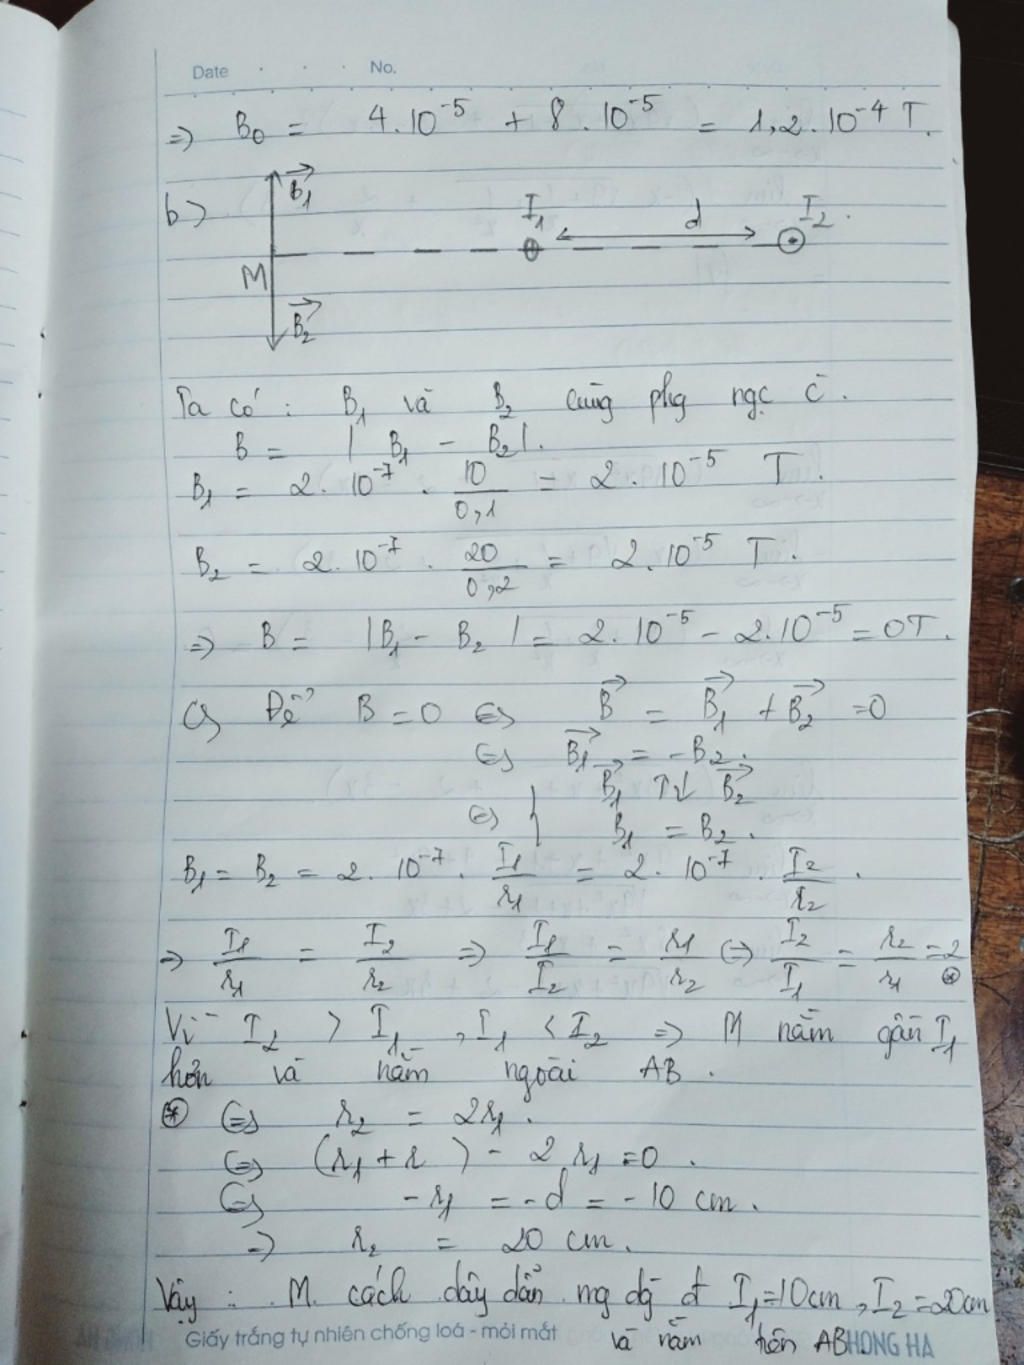 Date No.
=> B₀ = 4.10⁻⁵ + 8.10⁻⁵ = 1,2.10⁻⁴ T.
b) B₁ I₁ d I₂.
M
B₂
Ta có: B₁ và B₂ cùng phg ngc c.
B = | B₁ - B₂|.
B₁ = 2.10⁻⁷ . 10/0,1 = 2.10⁻⁵ T.
B₂ = 2.10⁻⁷ . 20/0,2 = 2.10⁻⁵ T.
=> B = |B₁ - B₂| = 2.10⁻⁵ - 2.10⁻⁵ = 0T.
c) Để B = 0 <=> B⃗ = B⃗₁ + B⃗₂ = 0
<=> B⃗₁ = -B₂.
<=> { B⃗₁ ↑↓ B⃗₂
B₁ = B₂.
B₁ = B₂ = 2.10⁻⁷ . I₁/r₁ = 2.10⁻⁷ . I₂/r₂ .
=> I₁/r₁ = I₂/r₂ => I₁/I₂ = r₁/r₂ <=> I₂/I₁ = r₂/r₁ = 2 (*)
Vì I₂ > I₁, I₁ < I₂ => M nằm gần I₁
hơn và nằm ngoài AB.
(*) <=> r₂ = 2r₁.
<=> (r₁ + r ) - 2r₁ = 0.
<=> -r₁ = -d = -10 cm.
=> r₂ = 20 cm.
Vậy: M cách dây dẫn mg dđ đ I₁=10cm, I₂=20cm
và nằm trên AB
Giấy trắng tự nhiên chống loá - mỏi mắt HONG HA